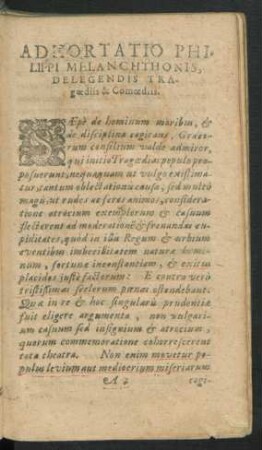 ADHORTATIO PHI-
LIPPI MELANCHTHONIS,
DE LEGENDIS TRA-
gœdiis & Comœdiis.
SÆpè de hominum moribus, &
de disciplina cogitans, Græco-
rum consilium valde admiror,
qui initio Tragœdias populo pro-
posuerunt, nequaquam ut vulgo existima-
tur, tantum oblectationis causa, sed multò
magis, ut rudes ac feros animos, consideratione
atrocium exemplorum & casuum
flecterent ad moderationē & frenandas cu-
piditates, quod in iis Regum & urbium
eventibus imbecillitatem naturæ homi-
num, fortunæ inconstantiam, & exitus
placidos justè factorum: E contra verò
tristissimas scelerum pœnas ostendebant.
Qua in re & hoc singularis prudentiæ
fuit eligere argumenta, non vulgarium
casuum sed insignium & atrocium,
quorum commemoratione cohorrescerent
tota theatra. Non enim movetur po-
pulus levium aut mediocrium miseriarum
A 2 cogi-